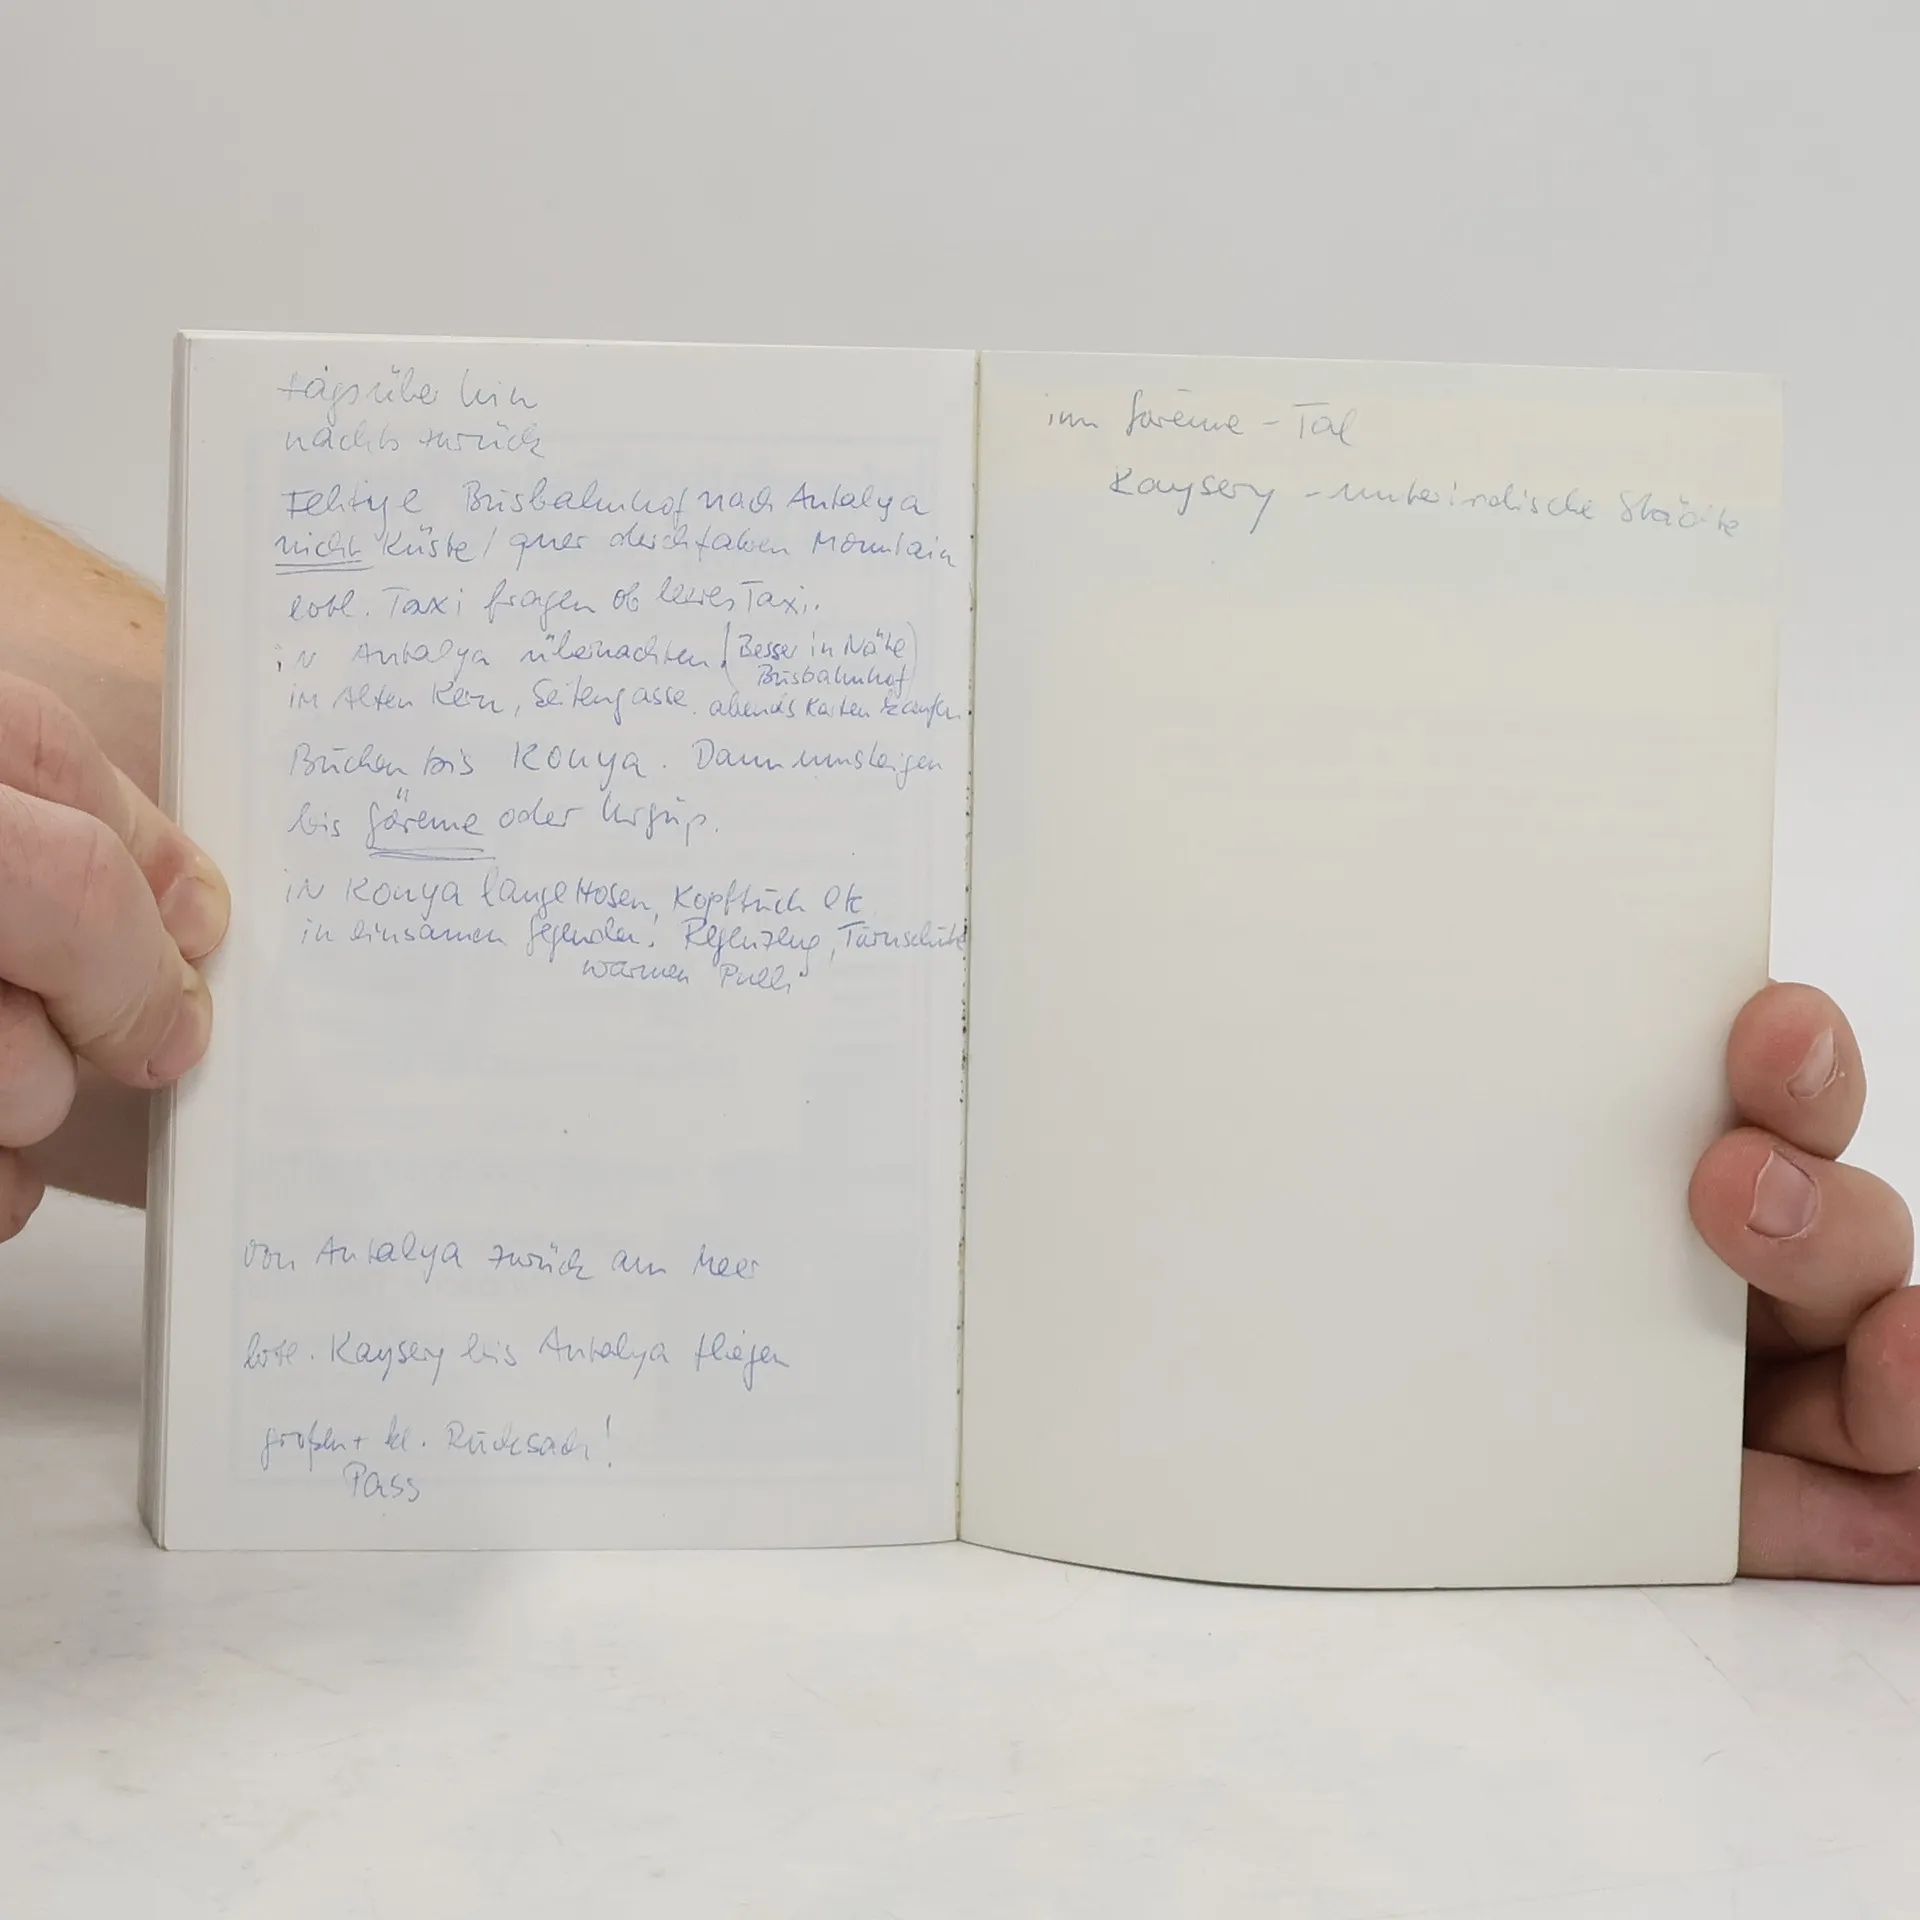 tagsüber hin
nachts zurück
Fehtiye Busbahnhof nach Antalya
nicht Küste / quer durchfahren Mountain
evtl. Taxi fragen ob leeres Taxi.
in Antalya übernachten. (Besser in Nähe Busbahnhof)
im Alten Kern, Seitengasse. abends Karten kaufen.
Buchen bis Konya. Dann umsteigen
bis Göreme oder Urgüp.
in Konya lange Hosen, Kopftuch etc
in einsamen Gegenden! Regenzeug, Turnschuhe
warmen Pulli
von Antalya zurück am Meer
evtl. Kaysery bis Antalya fliegen
großen + kl. Rucksack!
Pass
im Göreme - Tal
Kaysery - unterirdische Städte